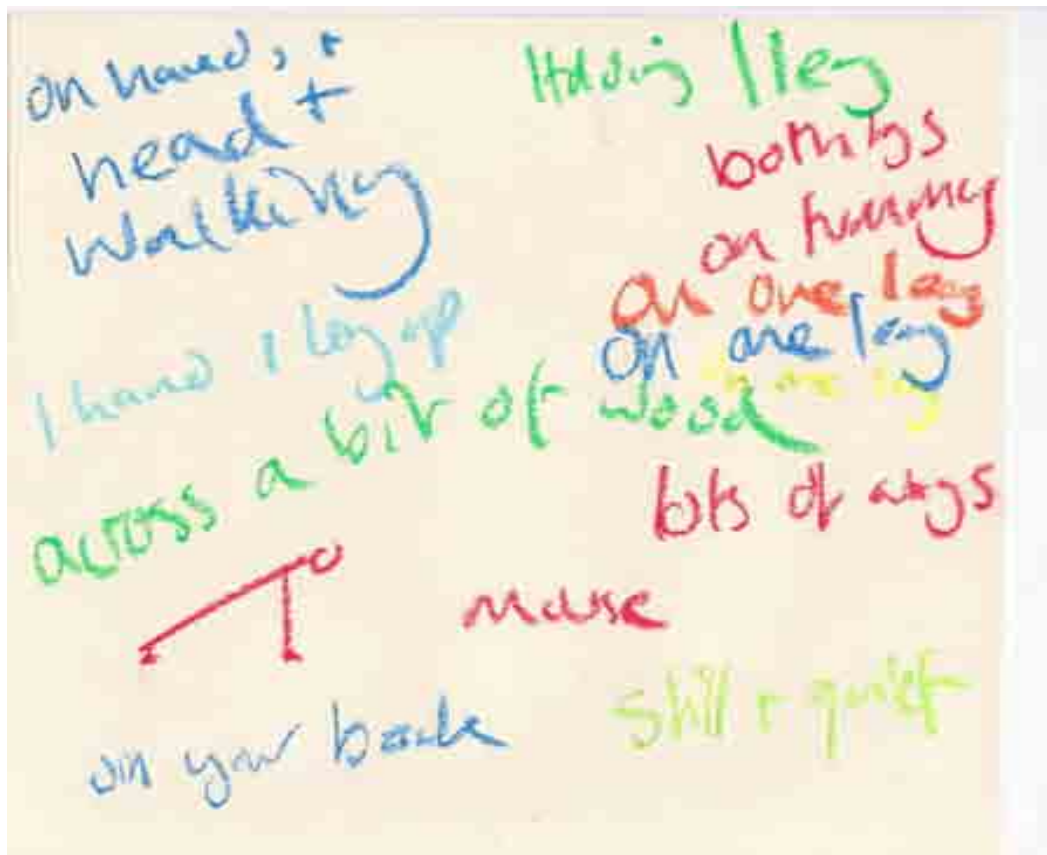 on hand, +
head +
walking
Holding 1 leg
both legs
on tummy
on one leg
on one leg
on one leg
1 hand 1 leg up
across a bit of wood
lots of ways
mouse
still + quiet
on your back